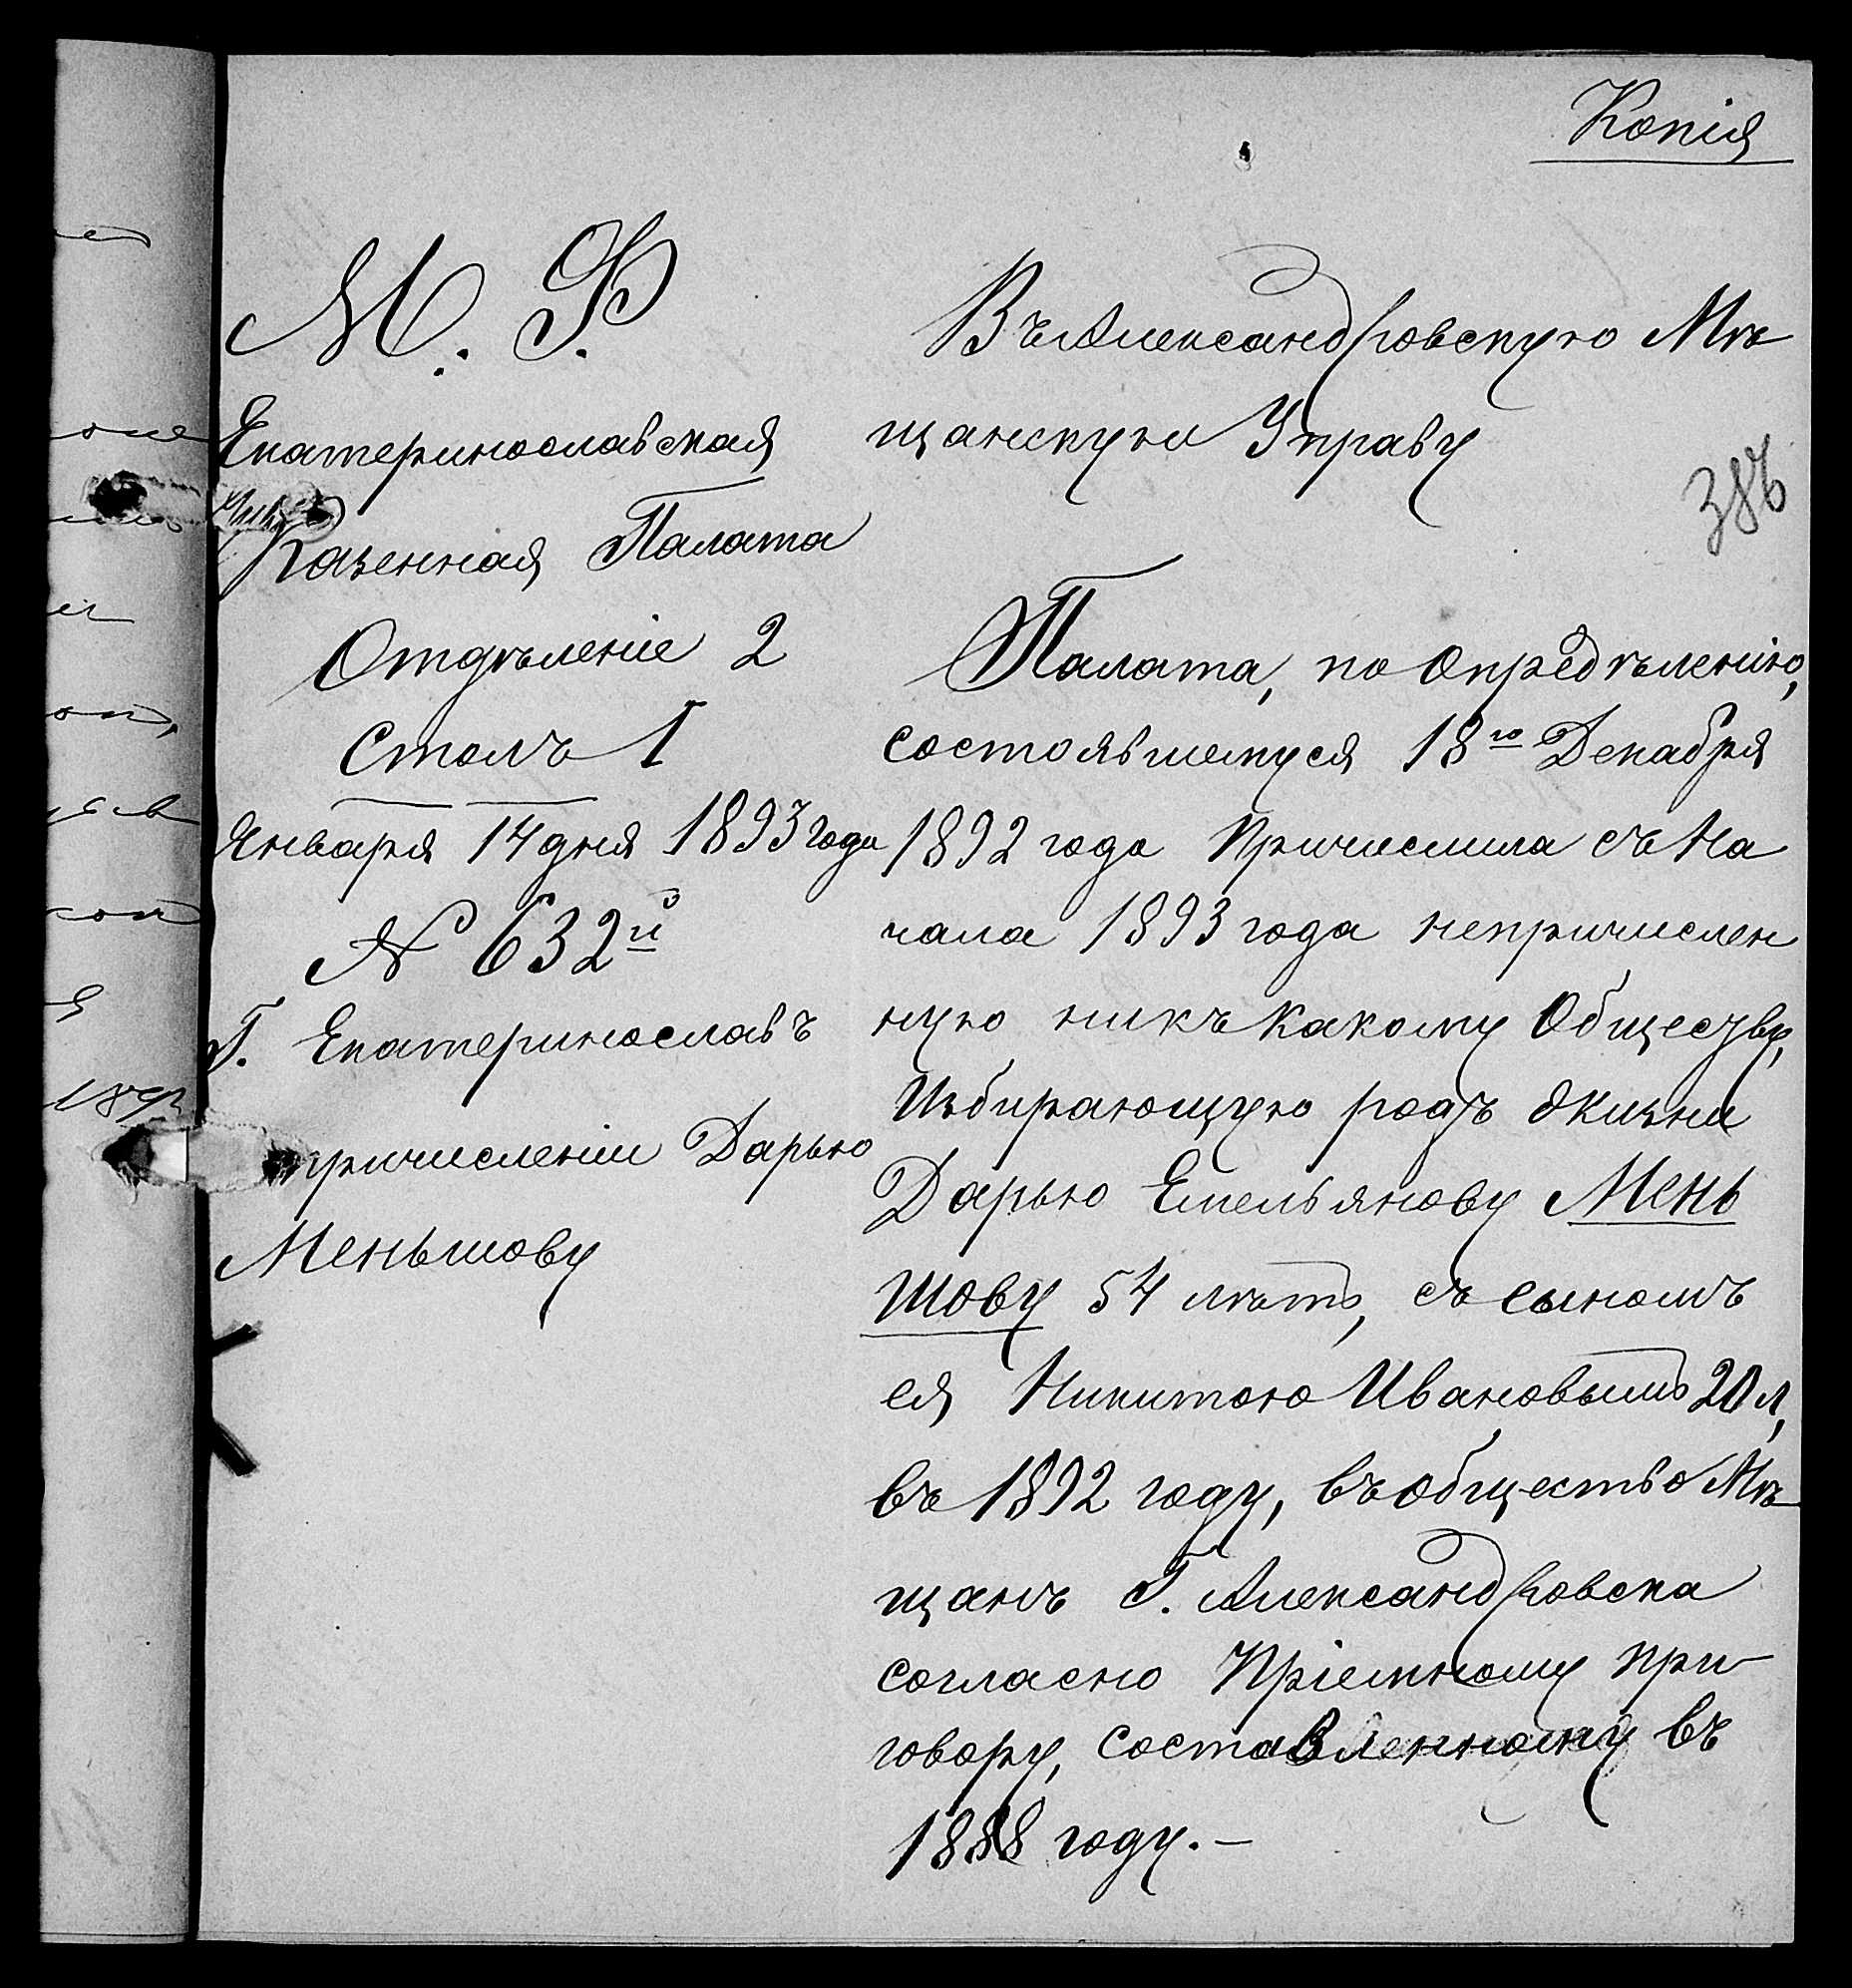 Копія
М. Ф.
Екатеринославская
Казенная Палата
Отдѣленіе 2
Столъ 1
Января 14 дня 1893 года
№ 632й
Г. Екатеринославъ
причисленіи Дарью
Меньшову
Въ Александровскую Мѣ
щанскую Управу
386
Палата, по опредѣленію,
состоявшемуся 18го Декабря
1892 года причислила съ На
чала 1893 года непричислен
ную никъ какому Общеснву,
Избирающую родъ жизни
Дарью Емельянову Мень
шову 54 лѣтъ, съ сыномъ
ея Никитою Ивановымъ 20 л,
въ 1892 году, въ общество Мѣ
щанъ Г. Александровска
согласно Пріемному при
говору, составленному въ
1888 году.—